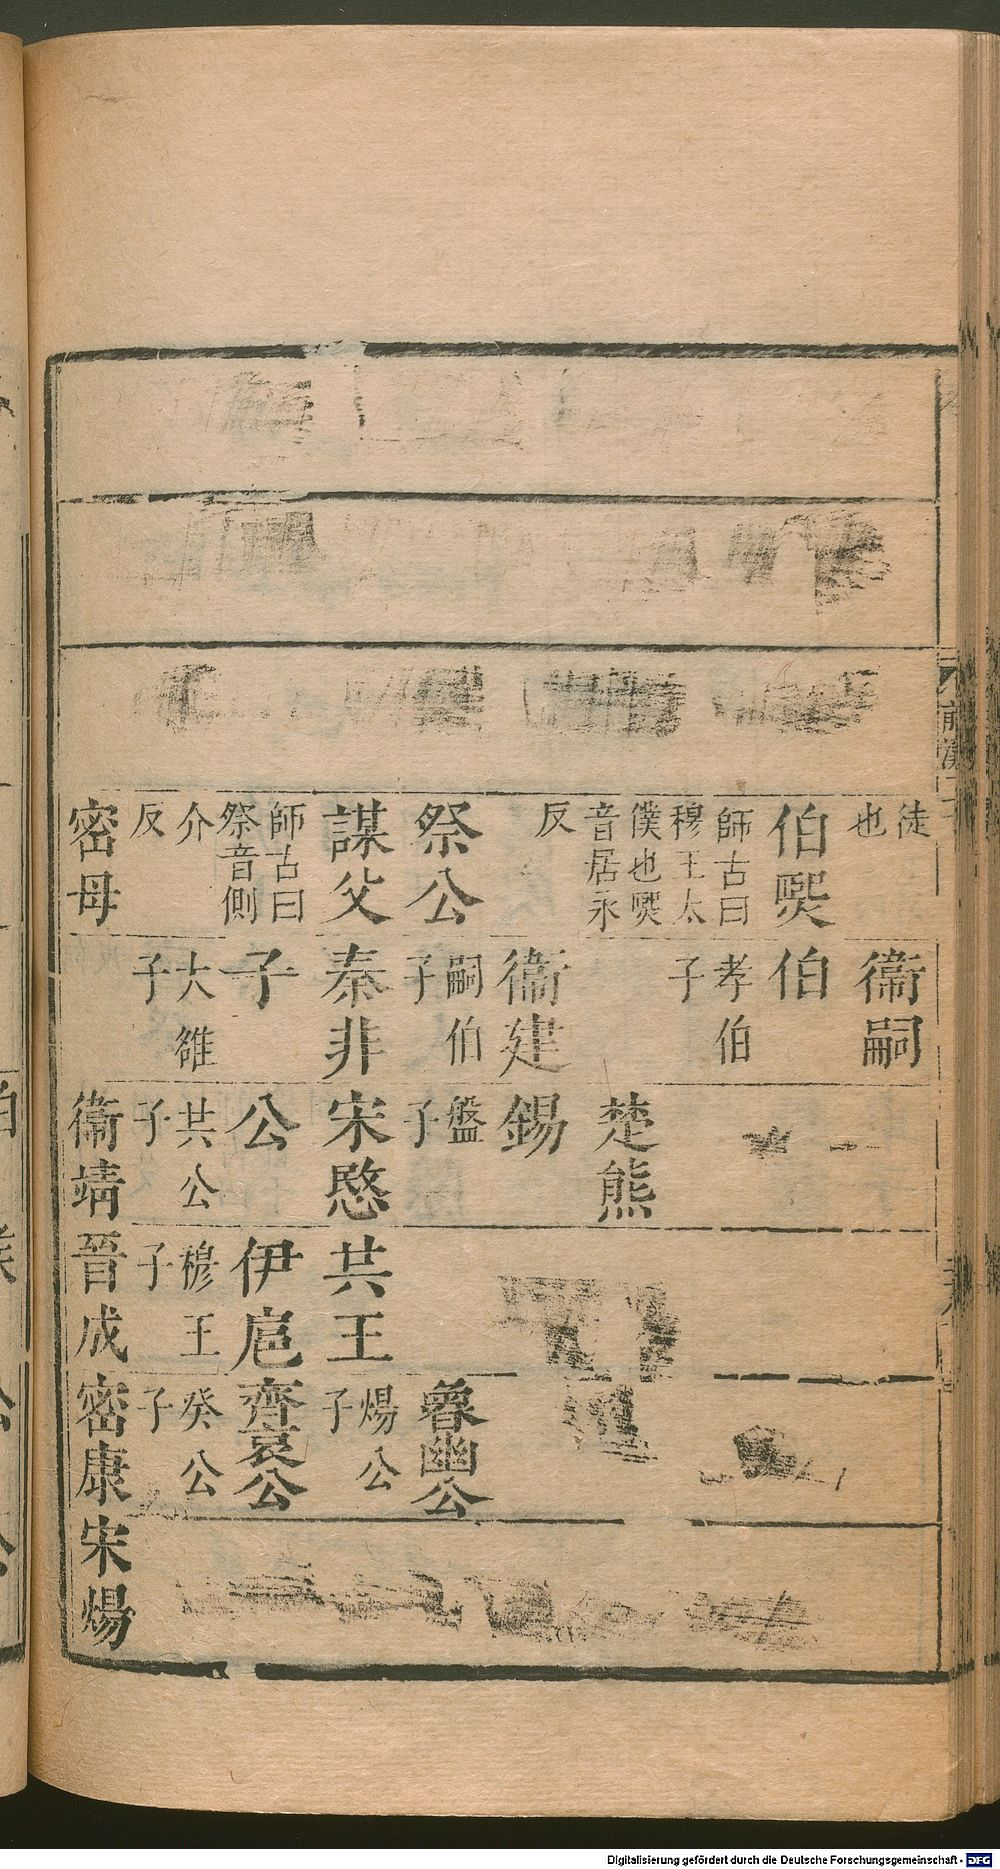 徒
也
伯煛
師古曰
穆王太
僕也煛
音居永
反
祭公
謀父
師古曰
祭音側
介
反
密母
衞嗣
伯
孝伯
子
衞建
嗣伯
子
秦非
子
大雒
子
楚熊
錫
盤
子
宋愍
公
共公
子
衞靖
共王
伊扈
穆王
子
晉成
魯幽公
煬公
子
齊哀公
癸公
子
密康
宋煬
前漢
Digitalisierung gefördert durch die Deutsche Forschungsgemeinschaft - DFG